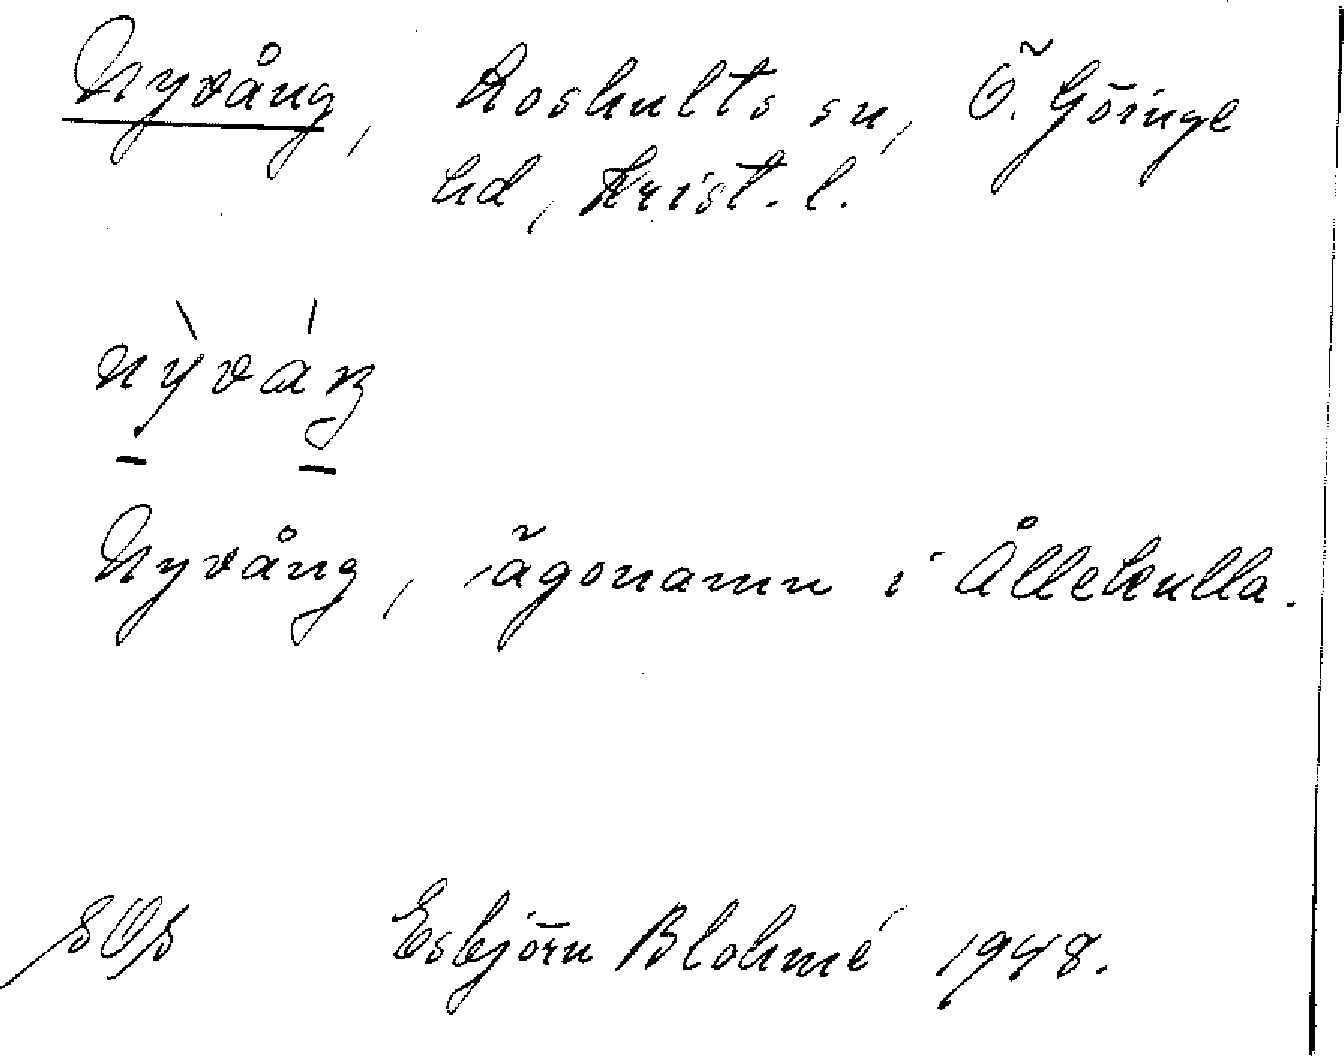 Nyvång, Loshults sn, Ö. Göinge
hd, Krist. l.
nỳváŋ
Nyvång, ägonamn i Ållekulla.
Esbjörn Blohmé 1948.